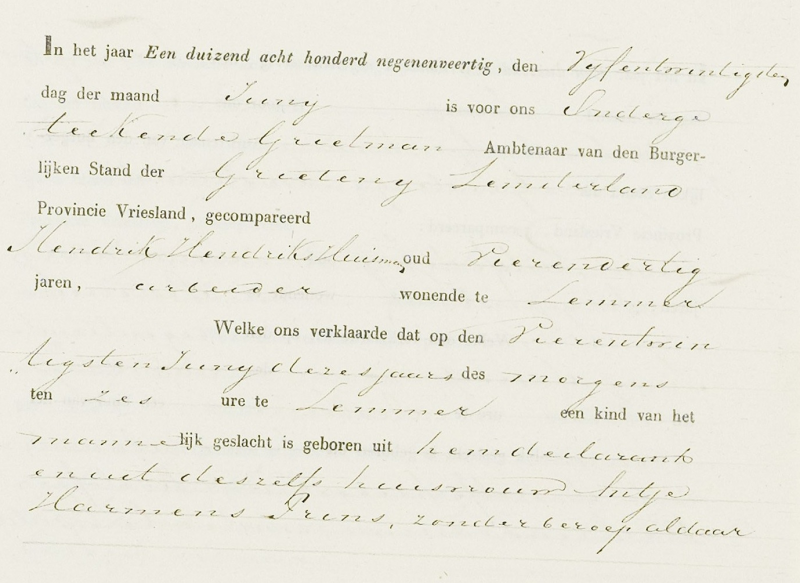 In het jaar Een duizend acht honderd negenenveertig, den Vyfentwintigsten
dag der maand Juny is voor ons Onderge
teekende Grietman Ambtenaar van den Burger-
lijken Stand der Grieteny Lemsterland
Provincie Vriesland, gecompareerd
Hendrik Hendriks Huisman oud Vierendertig
jaren, arbeider wonende te Lemmer
Welke ons verklaarde dat op den Vierentwin
„tigsten Juny dezes jaars des morgens
ten zes ure te Lemmer een kind van het
mannelijk geslacht is geboren uit hem declarant
en uit deszelfs huisvrouw
Harmens Prins, zonder beroep aldaar